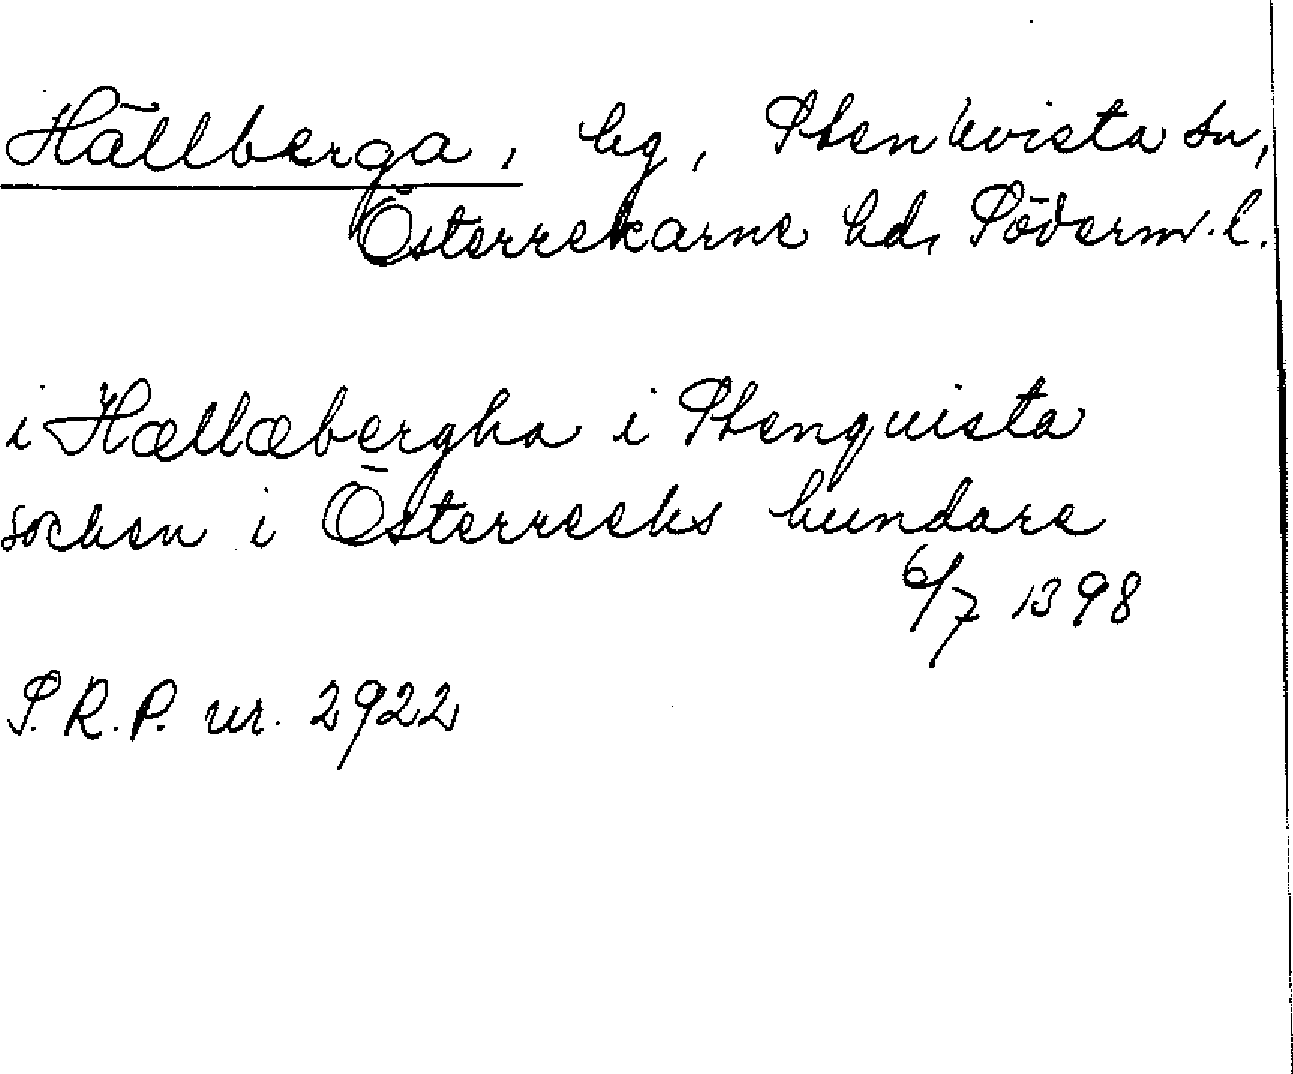 Hällberga, by, Stenkvista sn,
Österrekarne hd, Söderm. l.
i Hællæbergha i Stenquista
sochen i Österrecks hundare
6/7 1398
S.R.P. nr. 2922